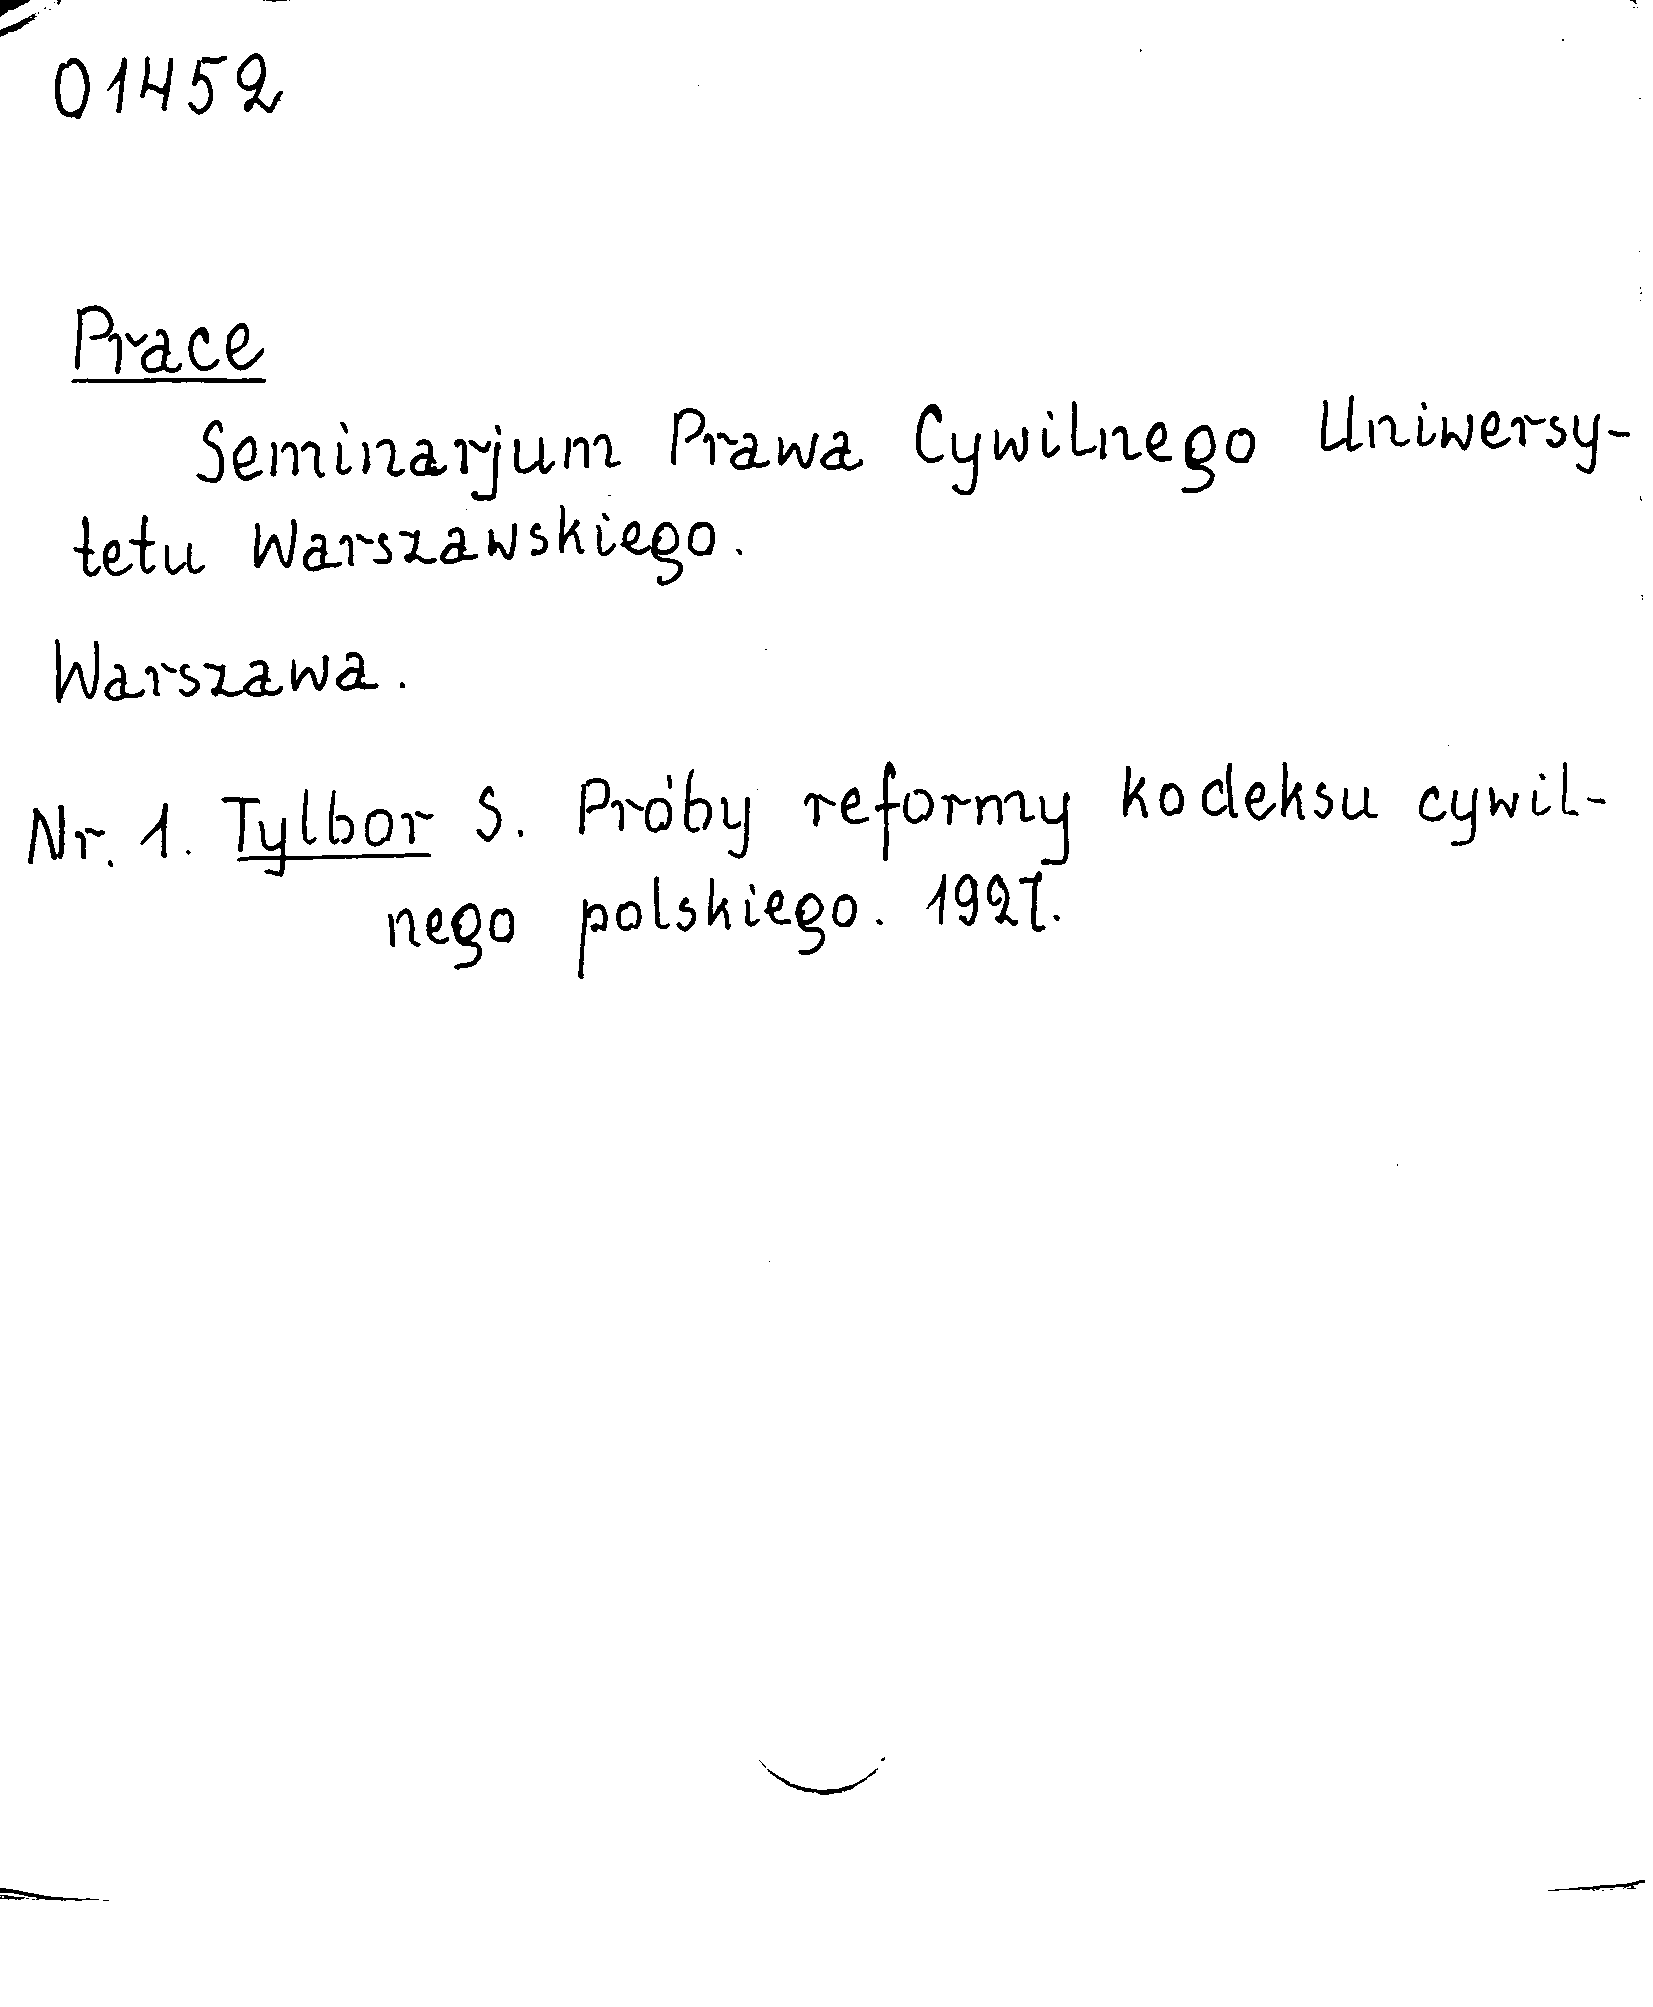 01452
Prace
Seminarjum Prawa Cywilnego Uniwersy-
tetu Warszawskiego.
Warszawa.
Nr. 1. Tylbor S. Próby reformy kodeksu cywil-
nego polskiego. 1927.